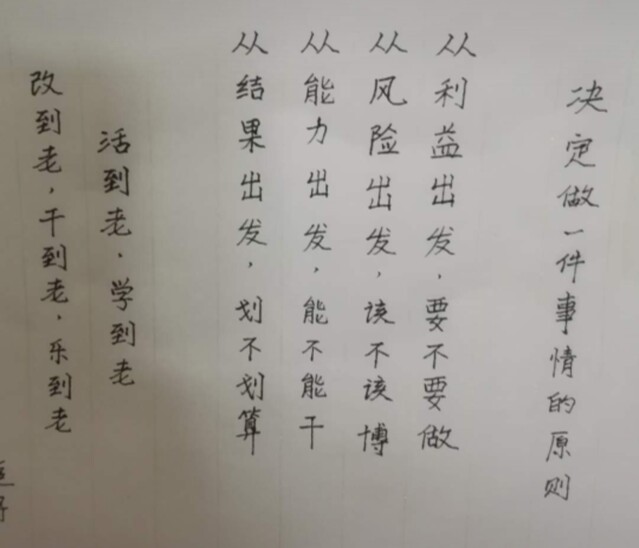 决定做一件事情的原则
从利益出发，要不要做
从风险出发，该不该博
从能力出发，能不能干
从结果出发，划不划算
活到老，学到老
改到老，干到老，乐到老